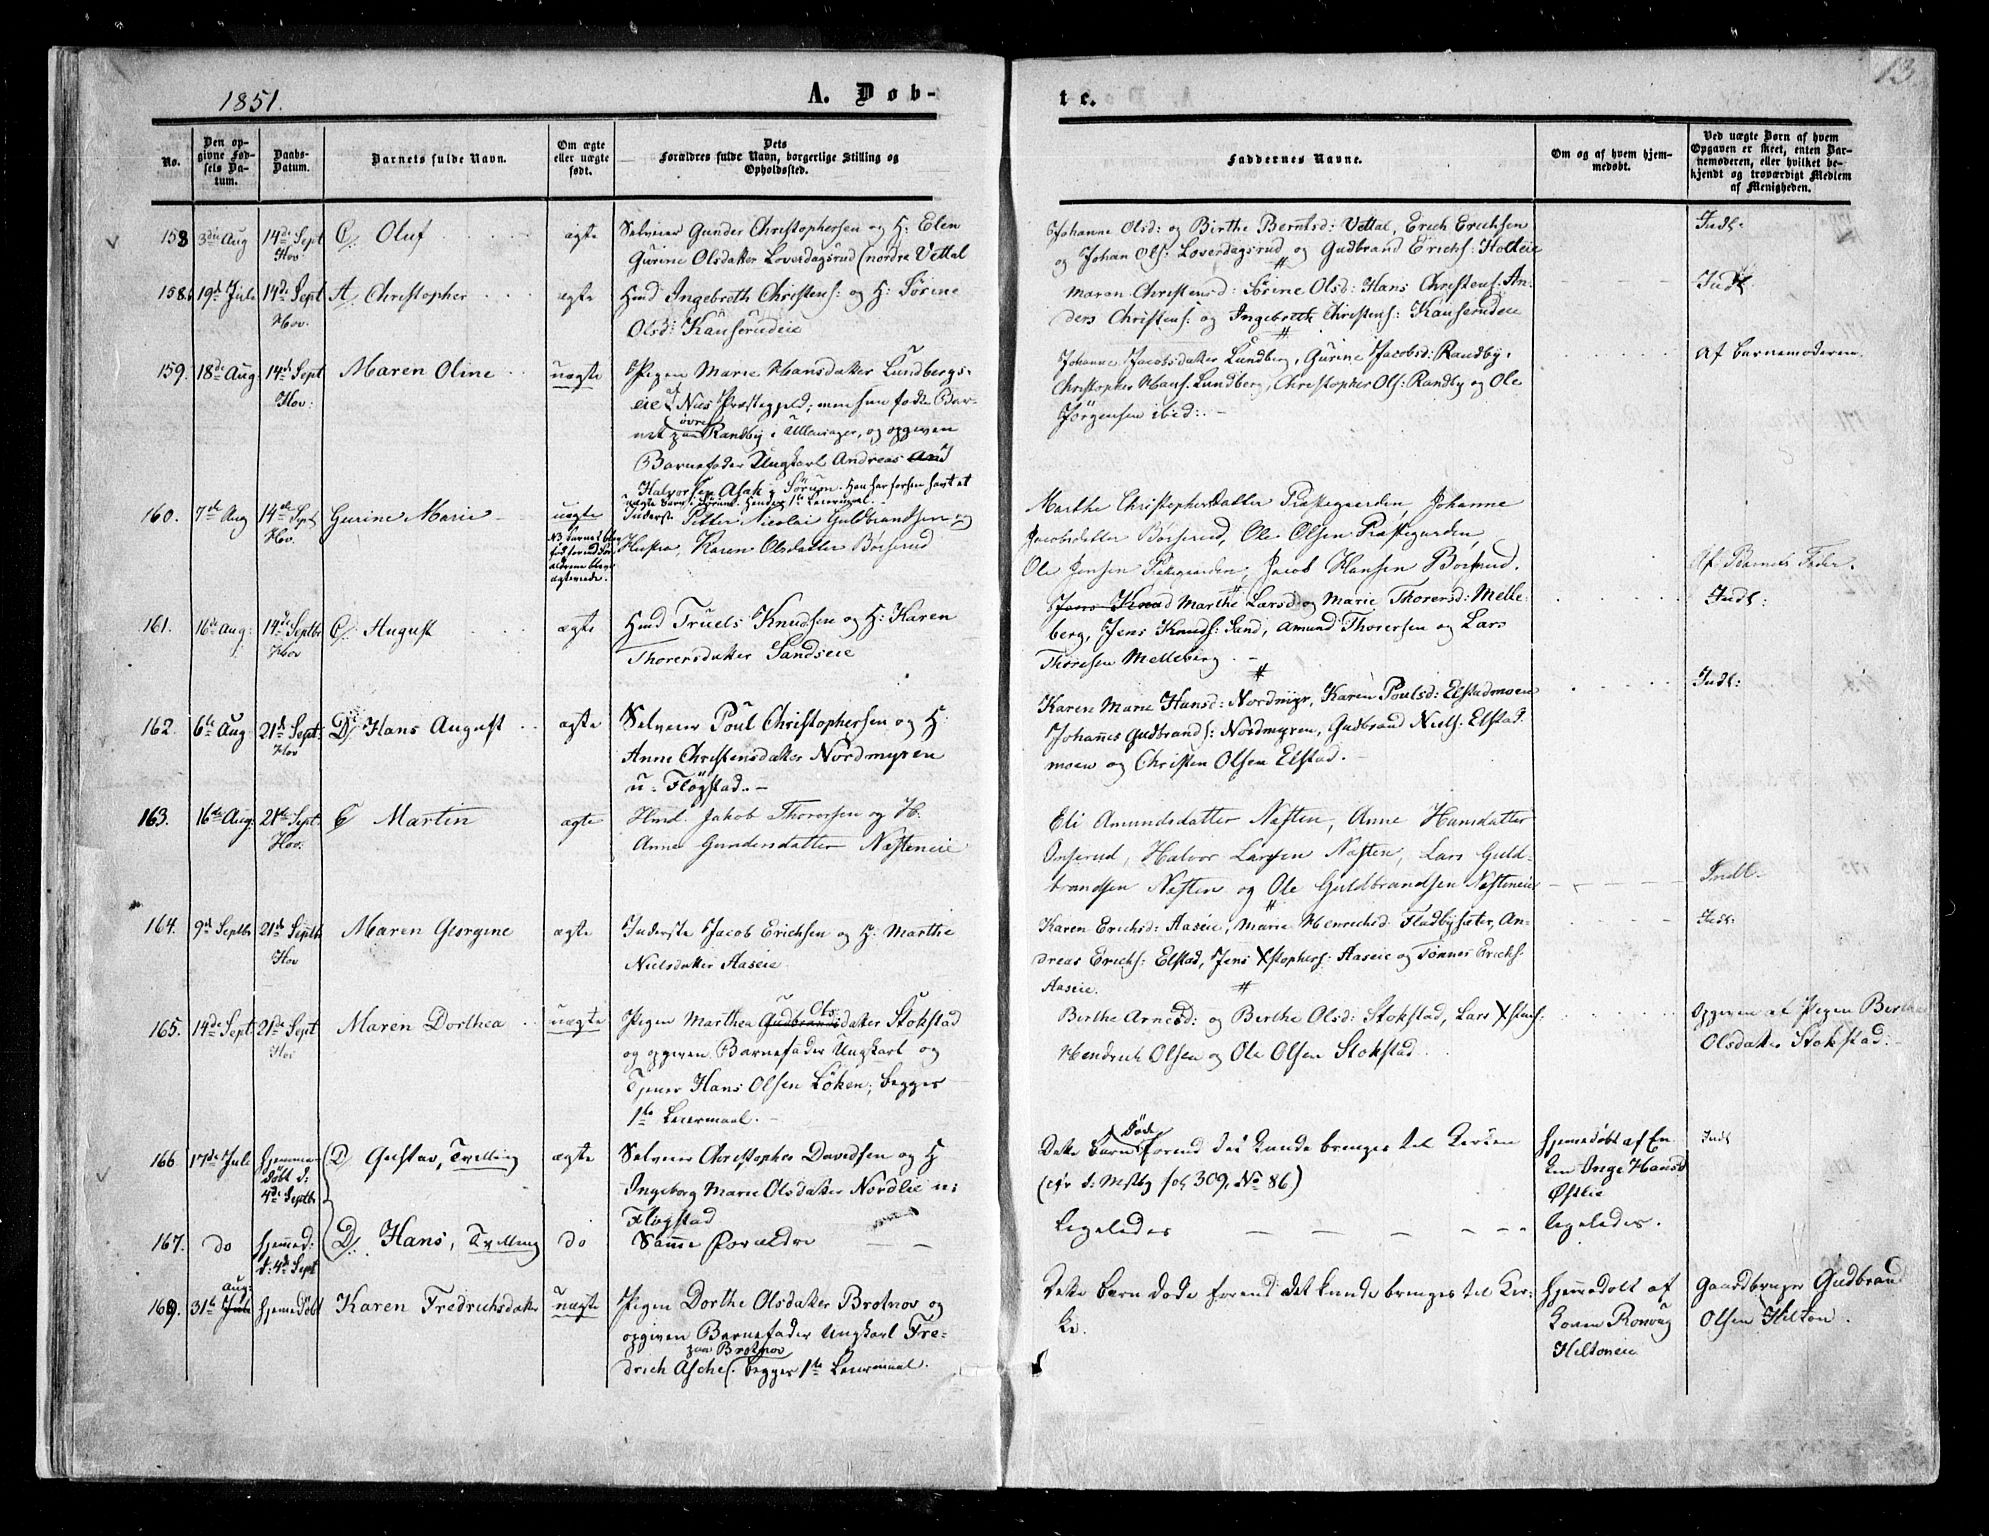 1851.
A. Døb-
te.
13.
No.
Den op-
givne Fød-
sels Da-
tum.
Daabs-
Datum.
Barnets fulde Navn.
Om ægte
eller uægte
født.
Dets
Forældres fulde Navn, borgerlige Stilling og
Opholdssted.
Faddernes Navne.
Om og af hvem hjem-
medøbt.
Ved uægte Børn af hvem
Opgaven er skeet, enten Bar-
nemoderen, eller hvilket be-
kjendt og troværdigt Medlem
af Menigheden.
158 3die Aug 14de Sept Oluf ægte Selveier Gunder Christophersen og H: Elen
Hov Gurine Olsdatter Loverdagsrud (nordre Vettal
Johanne Olsd: og Birthe Berntsd: Vettal, Erich Erichsen
og Johan Ols: Loverdagsrud og Gudbrand Erichs: Holteie
Indl.
158b 19d Juli 14de Sept A, Christopher ægte Hmd Ingebreth Christens: og H: Sørine
Hov. Olsd: Kauserudeie
Maren Christensd: Sørine Olsd: Hans Christens: An-
ders Christens: og Ingebreth Christens: Kauserudeie
Indl.
159. 18de Aug. 14de Sept Maren Oline uægte Pigen Marie Hansdatter Lundbergs-
Hov: eie i Næs Præstegjeld; men hun fødte Bar-
net paa øvre Randby i Ullensager, og opgiven
Barnefader Ungkarl Andreas And
Halvorsen Asak i Sørum. Han har forhen havt et
uægte Barn i Sørum. Hendes 1ste Leiermaal.
Johanne Jacobsdatter Lundberg, Gurine Jacobsd: Randby,
Christopher Hans: Lundberg, Christopher Ols: Randby og Ole
Jørgensen ibid:
Af Barnemoderen.
160. 7de Aug 14de Sept Gurine Marie uægte Inderste Petter Nicolai Guldbrandsen og
Hov. NB Barnet blev
født forend For-
ældrene bleve
ægteviede.
Hustru, Karen Olsdatter Børserud
Marthe Christophersdatter Præstegaarden, Johanne
Jacobsdatter Børserud, Ole Olsen Præstegarden,
Ole Jensen Præstegaarden, Jacob Hansen Børserud.
Af Barnets Fader.
161. 16de Aug: 14de Septbr August ægte Hmd Truels Knudsen og H: Karen
Hov Thorersdatter Sandseie
Jens Knud Marthe Larsd: og Marie Thorersd: Melle-
berg, Jens Knuds: Sand, Amund Thorersen og Lars
Thoresen Melleberg.
Indl:
162. 6te Aug 21de Sept. D, Hans August ægte Selveier Poul Christophersen og H:
Hov Anne Christensdatter Nordmyren
u. Fløgstad.
Karen Marie Hansd: Nordmyr, Karen Poulsd: Elstadmoen
Johannes Gudbrands: Nordmyren, Gudbrand Niels: Elstad-
moen og Christen Olsen Elstad.
Indl:
163. 16de Aug. 21de Sept. Martin ægte Hmd. Jakob Thorersen og H.
Hov. Anne Gundersdatter Næsteneie
Eli Amundsdatter Næsten, Anne Hansdatter
Onserud, Halvor Larsen Næsten, Lars Guld-
brandsen Næsten og Ole Guldbrandsen Næsteneie
Indl.
164. 9de Septbr 21de Septbr Maren Georgine ægte Inderste Jacob Erichsen og H: Marthe
Hov Nielsdatter Aaseie
Karen Erichsd: Aaseie, Marie Henrichsd: Fladbysæter, An-
dreas Erichs: Elstad, Jens Xstophers: Aaseie og Tønnes Erichs:
Aaseie.
Indl:
165. 14de Sept 21de Sept Maren Dorthea uægte Pigen Marthea Gudbrands Olsdatter Stokstad
Hov og opgiven Barnefader Ungkarl og
Tjener Hans Olsen Løken; begges
1ste Leiermaal.
Birthe Arnesd: og Berthe Olsd: Stokstad, Lars Xstens:
Hendrich Olsen og Ole Olsen Stokstad
Opgiven af Pigen Berthe
Olsdatter Stokstad.
166 17de Juli hjemme-
døbt d:
4de Septbr
D, Gustav, Tvilling ægte Selveier Christopher Davidsen og H
Ingeborg Marie Olsdatter Nordlie u:
Fløgstad
Dette Barn døde forend det kunde bringes til Kirken
(cfr d: Mstby fol 309, No 86.)
hjemmedøbt af En-
ken Inge Hansd
Østlie
Indl
167. do hjemmed:
d: 4de Sept
D, Hans, Tvilling do Samme Forældre
Ligeledes
ligeledes.
169. 31te Juli Aug: hjemmedøbt Karen Fredrichsdatter uægte Pigen Dorthe Olsdatter Brotnov og
opgiven Barnefader Ungkarl Fre-
drich Asche paa Brotnov (begges 1ste Leiermaal.
Dette Barn døde forend det kunde bringes til Kir-
ke.
hjemmedøbt af
Konen Ronnaug
Hiltoneie
Gaardbruger Gudbrand
Olsen Hilton.